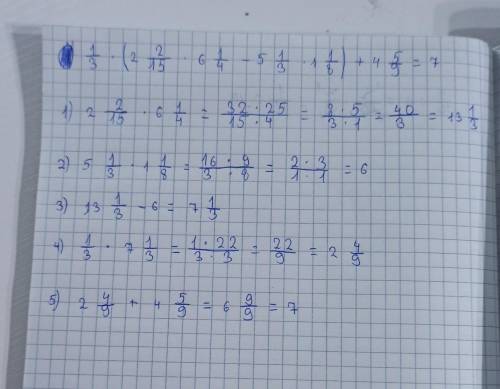 1/3 · (2 2/15 · 6 1/4 - 5 1/3 · 1 1/8) + 4 5/9 = 7
1) 2 2/15 · 6 1/4 = 32 · 25/15 · 4 = 8 · 5/3 · 1 = 40/3 = 13 1/3
2) 5 1/3 · 1 1/8 = 16 · 9/3 · 8 = 2 · 3/1 · 1 = 6
3) 13 1/3 - 6 = 7 1/3
4) 1/3 · 7 1/3 = 1 · 22/3 · 3 = 22/9 = 2 4/9
5) 2 4/9 + 4 5/9 = 6 9/9 = 7